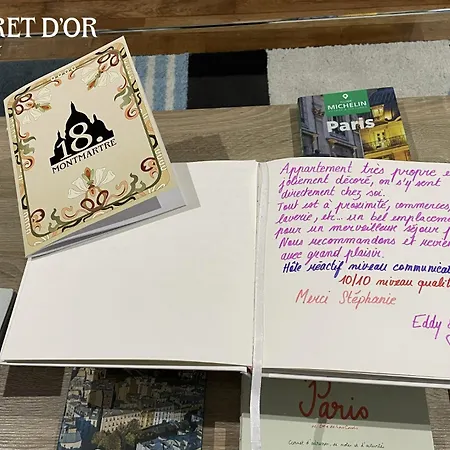 RET D'OR
18.
MONTMARTRE
MICHELIN
Paris
Appartement très propre e
joliement décoré, on s'y sent
directement chez soi.
Tout est à proximité, commerces,
laverie, etc... un bel emplaceme
pour un merveilleux séjour
Nous recommandons et revien
avec grand plaisir.
Hôte réactif niveau communicat
10/10 niveau qualit
Merci Stéphanie
Eddy
Paris